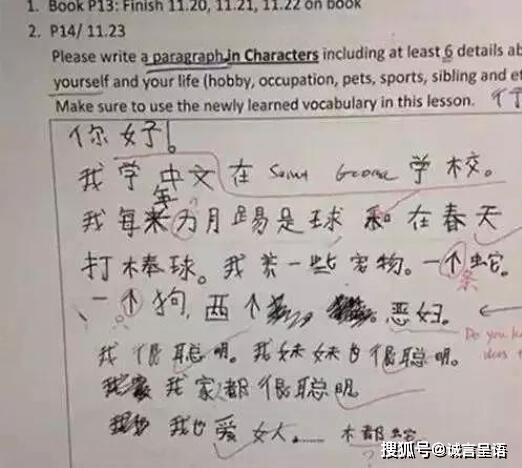 1. Book P13: Finish 11.20, 11.21, 11.22 on book
2. P14/ 11.23
Please write a paragraph in Characters including at least 6 details ab
yourself and your life (hobby, occupation, pets, sports, sibling and et
Make sure to use the newly learned vocabulary in this lesson.
你好!
我学中文在 Saint George 学校。
年
我每 月踢足球和在春天
打棒球。我养一些宠物。一个蛇。
条
一个狗,西个 恶妞。
Do you k
does t
我很聪明。我妹妹也很聪明。
我家都很聪明
我也爱女人…… 木都蛇
搜狐号@诚言呈语